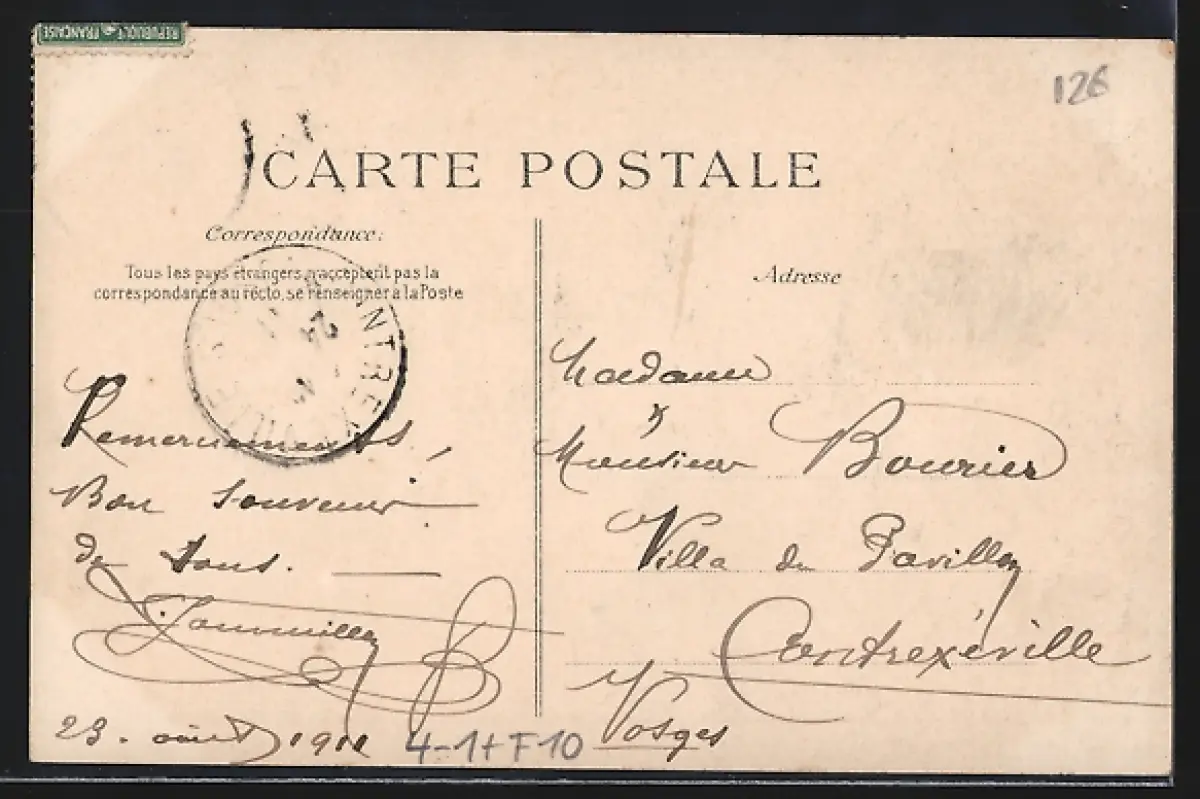 REPUBLIQUE FRANÇAISE
126
CARTE POSTALE
Correspondance:
Tous les pays étrangers n'acceptent pas la
correspondance au recto, se renseigner à la Poste
Remerciements,
Bon souvenir
de tous.
23. août 1911
4-1+F10
Adresse
Madame
&
Monsieur Bourier
Villa du Pavillon
Contrexéville
Vosges